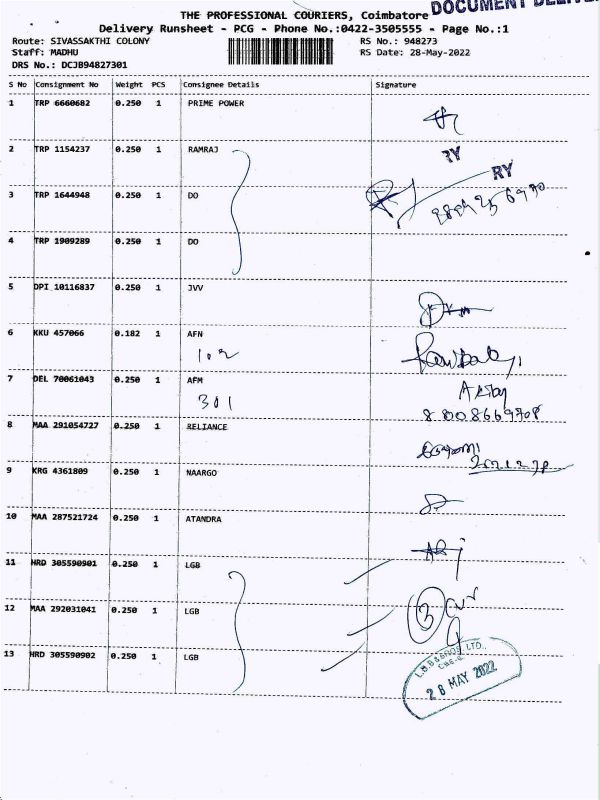 THE PROFESSIONAL COURIERS, Coimbatore
DOCUMENT
Delivery Runsheet - PCG - Phone No.:0422-3505555 - Page No.:1
Route: SIVASSAKTHI COLONY RS No.: 948273
Staff: MADHU RS Date: 28-May-2022
DRS No.: DCJB94827301
S No Consignment No Weight PCS Consignee Details Signature
1 TRP 6660682 0.250 1 PRIME POWER
2 TRP 1154237 0.250 1 RAMRAJ
RY
RY
3 TRP 1644948 0.250 1 DO
4 TRP 1909289 0.250 1 DO
5 DPI 10116837 0.250 1 JVV
6 KKU 457066 0.182 1 AFN
102
7 DEL 70061043 0.250 1 AFM
301
8 MAA 291054727 0.250 1 RELIANCE
9 KRG 4361809 0.250 1 NAARGO
10 MAA 287521724 0.250 1 ATANDRA
11 HRD 305590901 0.250 1 LGB
12 MAA 292031041 0.250 1 LGB
3
13 HRD 305590902 0.250 1 LGB
L.G.B & BROS LTD.,
CBE-6
28 MAY 2022